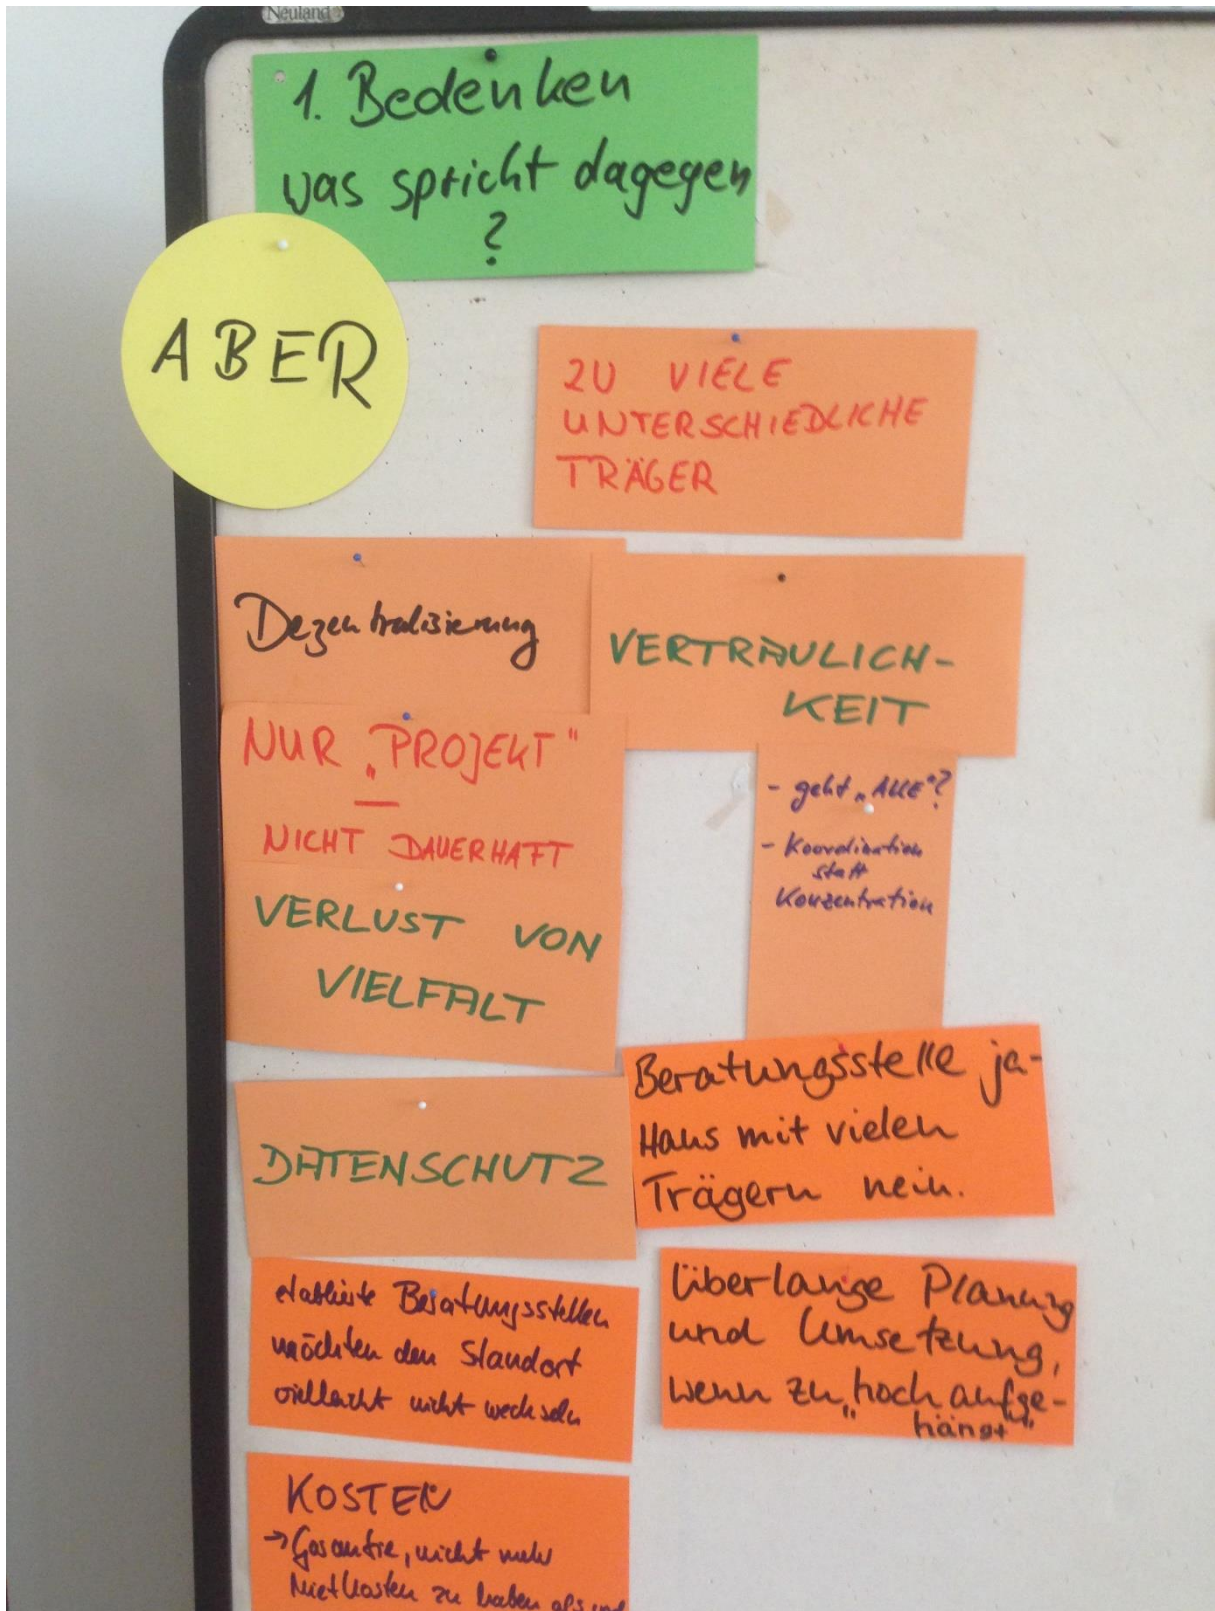 Neuland
1. Bedenken
was spricht dagegen
?
ABER
ZU VIELE
UNTERSCHIEDLICHE
TRÄGER
Dezentralisierung
VERTRAULICH-
KEIT
NUR „PROJEKT"
—
NICHT DAUERHAFT
- geht „ALLE"?
- Koordination
statt
Konzentration
VERLUST VON
VIELFALT
Beratungsstelle ja-
Haus mit vielen
Trägern nein.
DATENSCHUTZ
etablierte Beratungsstellen
möchten den Standort
vielleicht nicht wechseln
Überlange Planung
und Umsetzung,
wenn zu „hoch aufge-
hängt"
KOSTEN
→ Garantie, nicht mehr
Mietkosten zu haben als